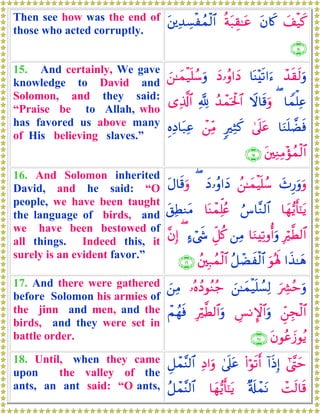 Then see how was the end of
those who acted corruptly.
كَيْفَ كَانَ عَٰقِبَةُ ٱلْمُفْسِدِينَ
15. And certainly, We gave
knowledge to David and
Solomon, and they said:
“Praise be to Allah, who
has favored us above many
of His believing slaves.”
وَلَقَدْ ءَاتَيْنَا دَاوُۥدَ وَسُلَيْمَٰنَ
عِلْمًا ۖ وَقَالَا ٱلْحَمْدُ لِلَّهِ ٱلَّذِى
فَضَّلَنَا عَلَىٰ كَثِيرٍ مِّنْ عِبَادِهِ
ٱلْمُؤْمِنِينَ
16. And Solomon inherited
David, and he said: “O
people, we have been taught
the language of birds, and
we have been bestowed of
all things. Indeed this, it
surely is an evident favor.”
وَوَرِثَ سُلَيْمَٰنُ دَاوُۥدَ ۖ وَقَالَ
يَٰٓأَيُّهَا ٱلنَّاسُ عُلِّمْنَا مَنطِقَ
ٱلطَّيْرِ وَأُوتِينَا مِن كُلِّ شَىْءٍ ۖ إِنَّ
هَٰذَا لَهُوَ ٱلْفَضْلُ ٱلْمُبِينُ
17. And there were gathered
before Solomon his armies of
the jinn and men, and the
birds, and they were set in
battle order.
وَحُشِرَ لِسُلَيْمَٰنَ جُنُودُهُۥ مِنَ
ٱلْجِنِّ وَٱلْإِنسِ وَٱلطَّيْرِ فَهُمْ
يُوزَعُونَ
18. Until, when they came
upon the valley of the
ants, an ant said: “O ants,
حَتَّىٰٓ إِذَآ أَتَوْا۟ عَلَىٰ وَادِ ٱلنَّمْلِ
قَالَتْ نَمْلَةٌ يَٰٓأَيُّهَا ٱلنَّمْلُ